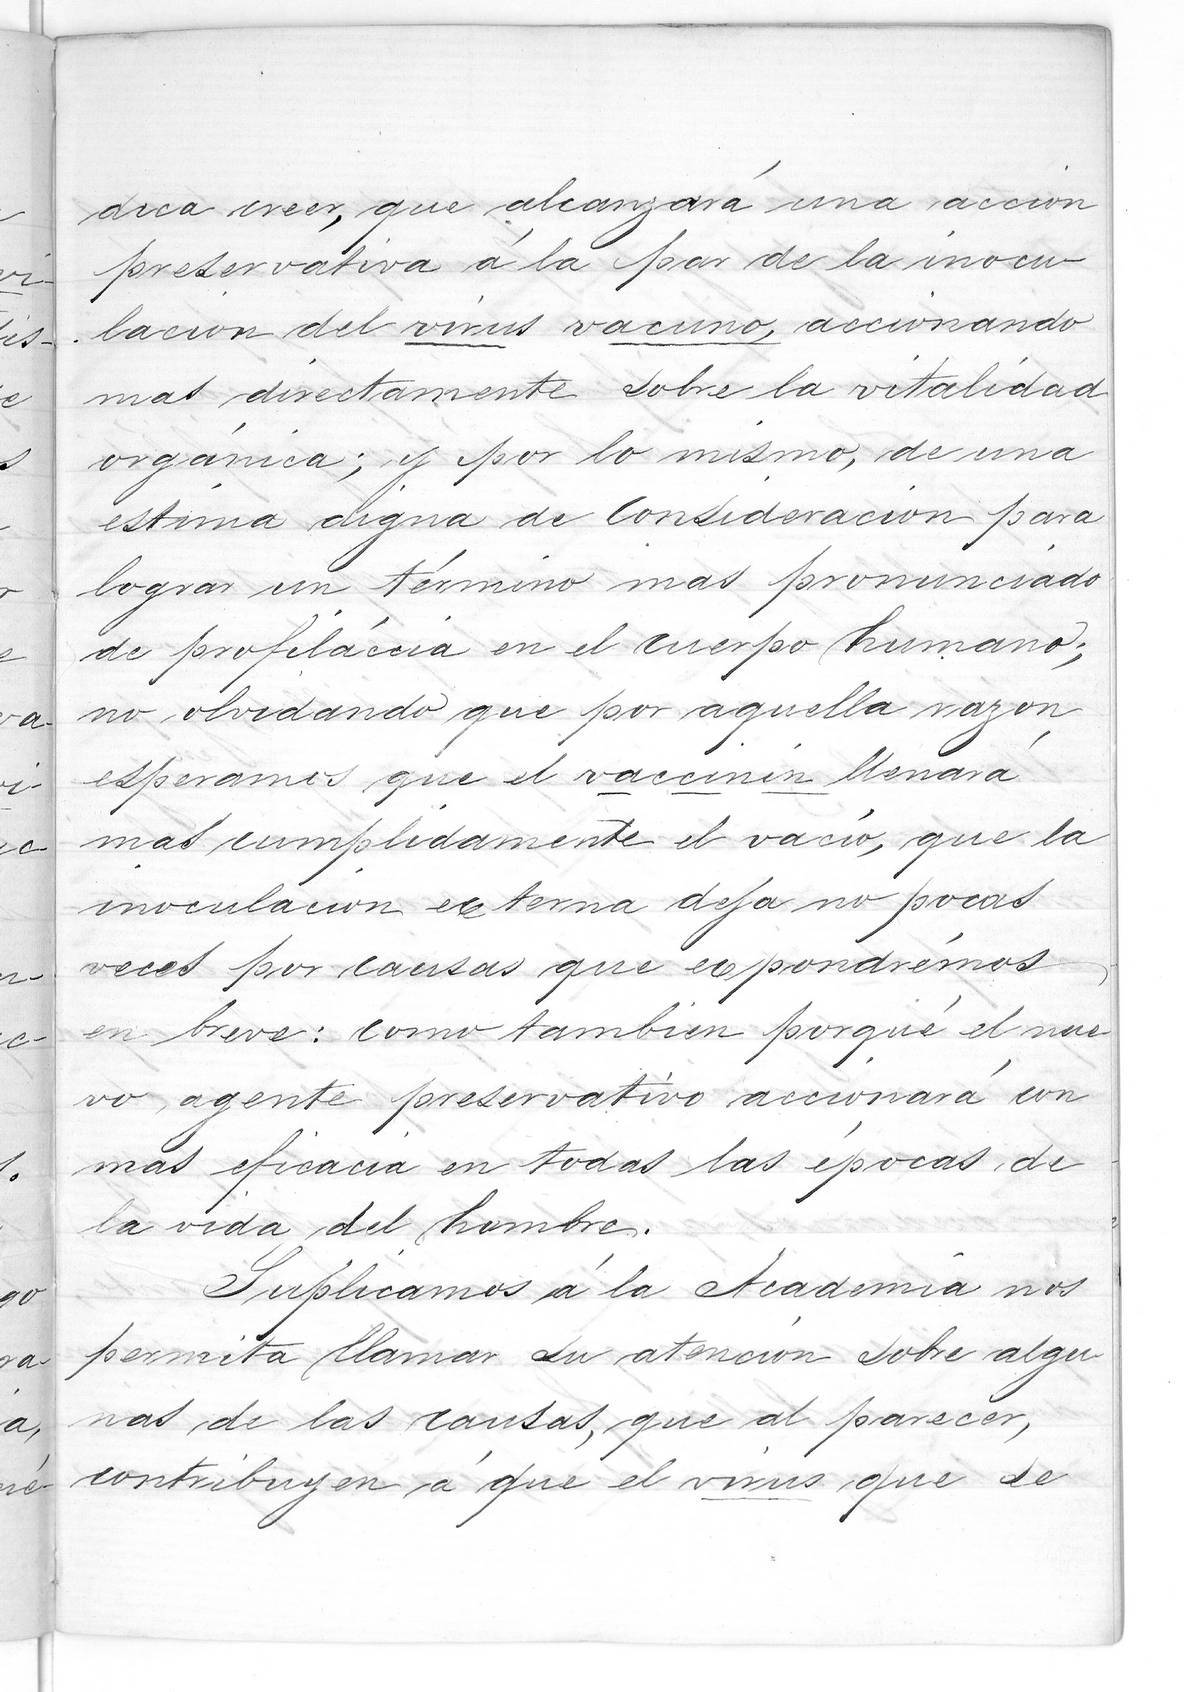 dica creer, que alcanzará una accion
preservativa á la par de la inocu-
lacion del virus vacuno, accionando
mas directamente sobre la vitalidad
orgánica; y por lo mismo, de una
estima digna de consideracion para
lograr un término mas pronunciado
de profiláccia en el cuerpo humano;
no olvidando que por aquella razon
esperamos que el vaccinin llenará
mas cumplidamente el vacio, que la
inoculacion externa deja no pocas
veces por causas que expondrémos
en breve: como tambien porqué el nue-
vo agente preservativo accionará con
mas eficacia en todas las épocas de
la vida del hombre.
Suplicamos á la Academia nos
permita llamar su atencion sobre algu-
nas de las causas, que al parecer,
contribuyen á que el virus que se